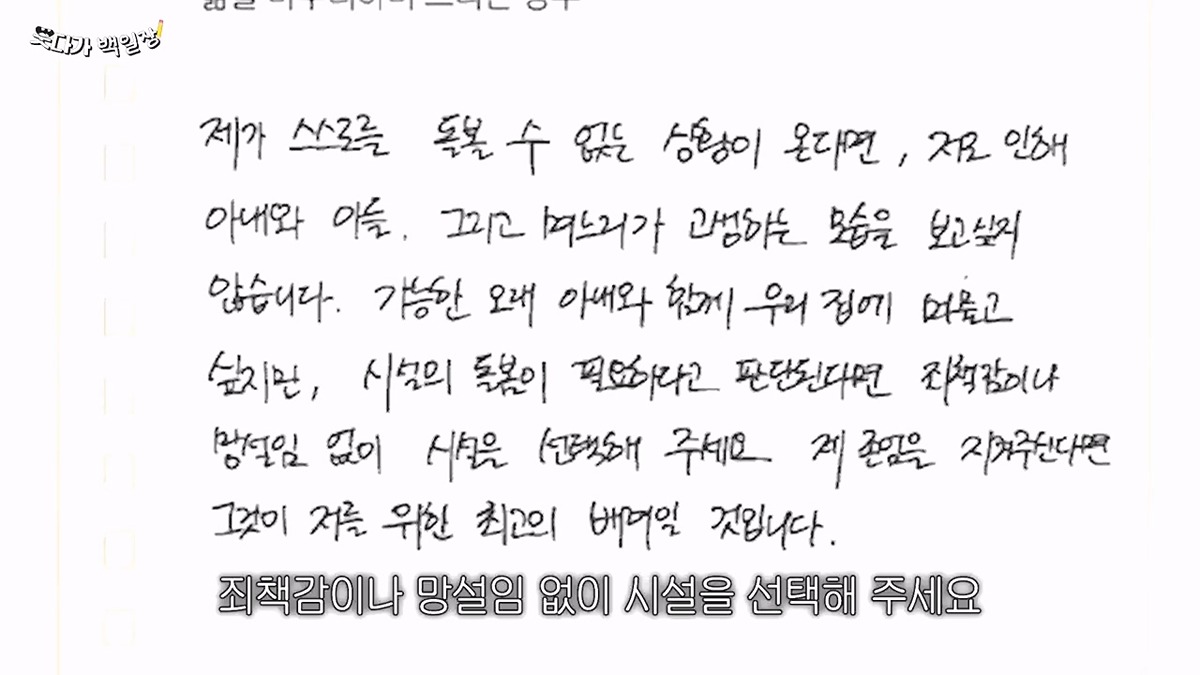 웃다가 백일장
제가 스스로를 돌볼 수 없는 상황이 온다면, 저로 인해
아내와 아들. 그리고 며느리가 고생하는 모습을 보고싶지
않습니다. 가능한 오래 아내와 함께 우리 집에 머물고
싶지만, 시설의 돌봄이 필요하다고 판단된다면 죄책감이나
망설임 없이 시설을 선택해 주세요. 제 존엄을 지켜주신다면
그것이 저를 위한 최고의 배려일 것입니다.
죄책감이나 망설임 없이 시설을 선택해 주세요